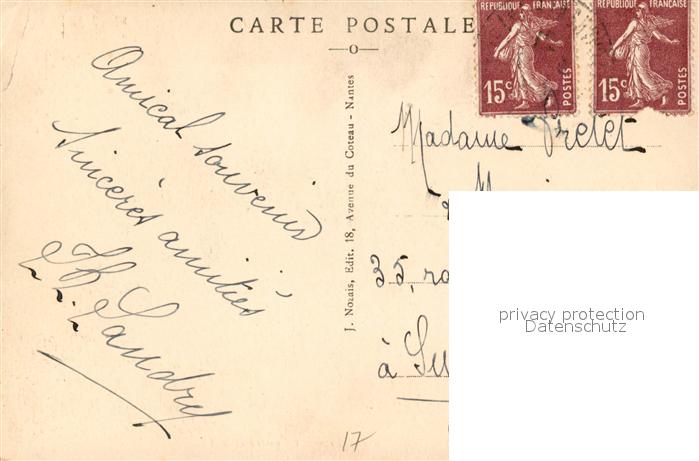 CARTE POSTALE
REPUBLIQUE FRANÇAISE
15c
POSTES
REPUBLIQUE FRANÇAISE
15c
POSTES
Amical souvenir
Sincères amitiés
Landry
J. Nozais, Edit. 18, Avenue du Coteau - Nantes
Madame Pretet
35,
à
17
privacy protection
Datenschutz